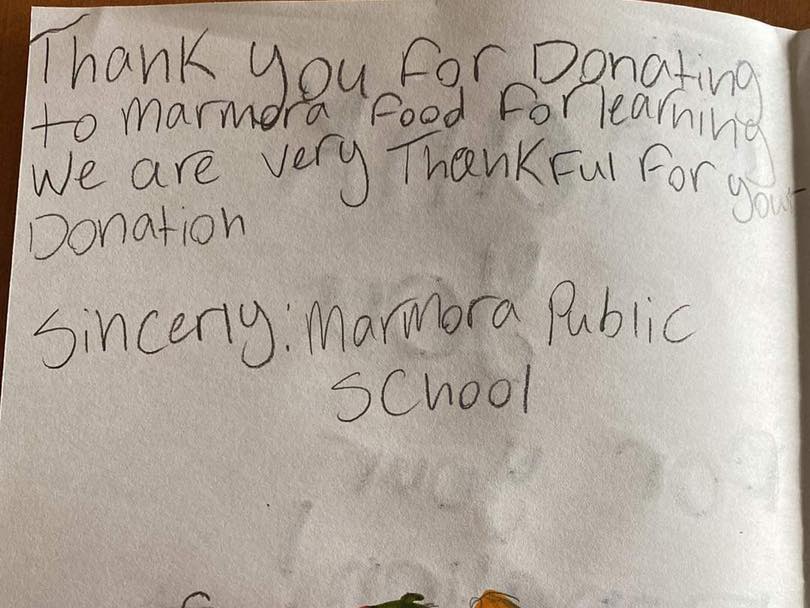 Thank you for Donating
to marmora food for learning
We are very Thankful for your
Donation
Sincerly: Marmora Public
School